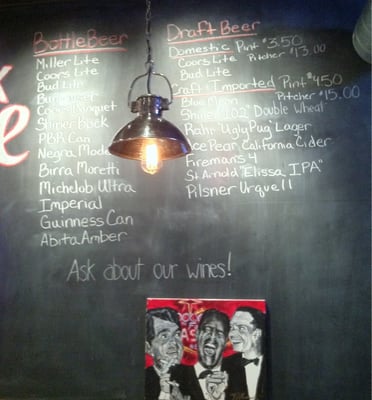 Bottle Beer
Miller Lite
Coors Lite
Bud Lite
Shiner Bock
PBR Can
Negra Modelo
Birra Moretti
Michelob Ultra
Imperial
Guinness Can
Abita Amber
Draft Beer
Domestic Pint $3.50
Coors Lite Pitcher $13.00
Bud Lite
Craft & Imported Pint $4.50
Blue Moon Pitcher $15.00
Shiner "102" Double Wheat
Rahr Ugly Pug Lager
Ace Pear California Cider
Firemans 4
St Arnold "Elissa IPA"
Pilsner Urquell
Ask about our wines!